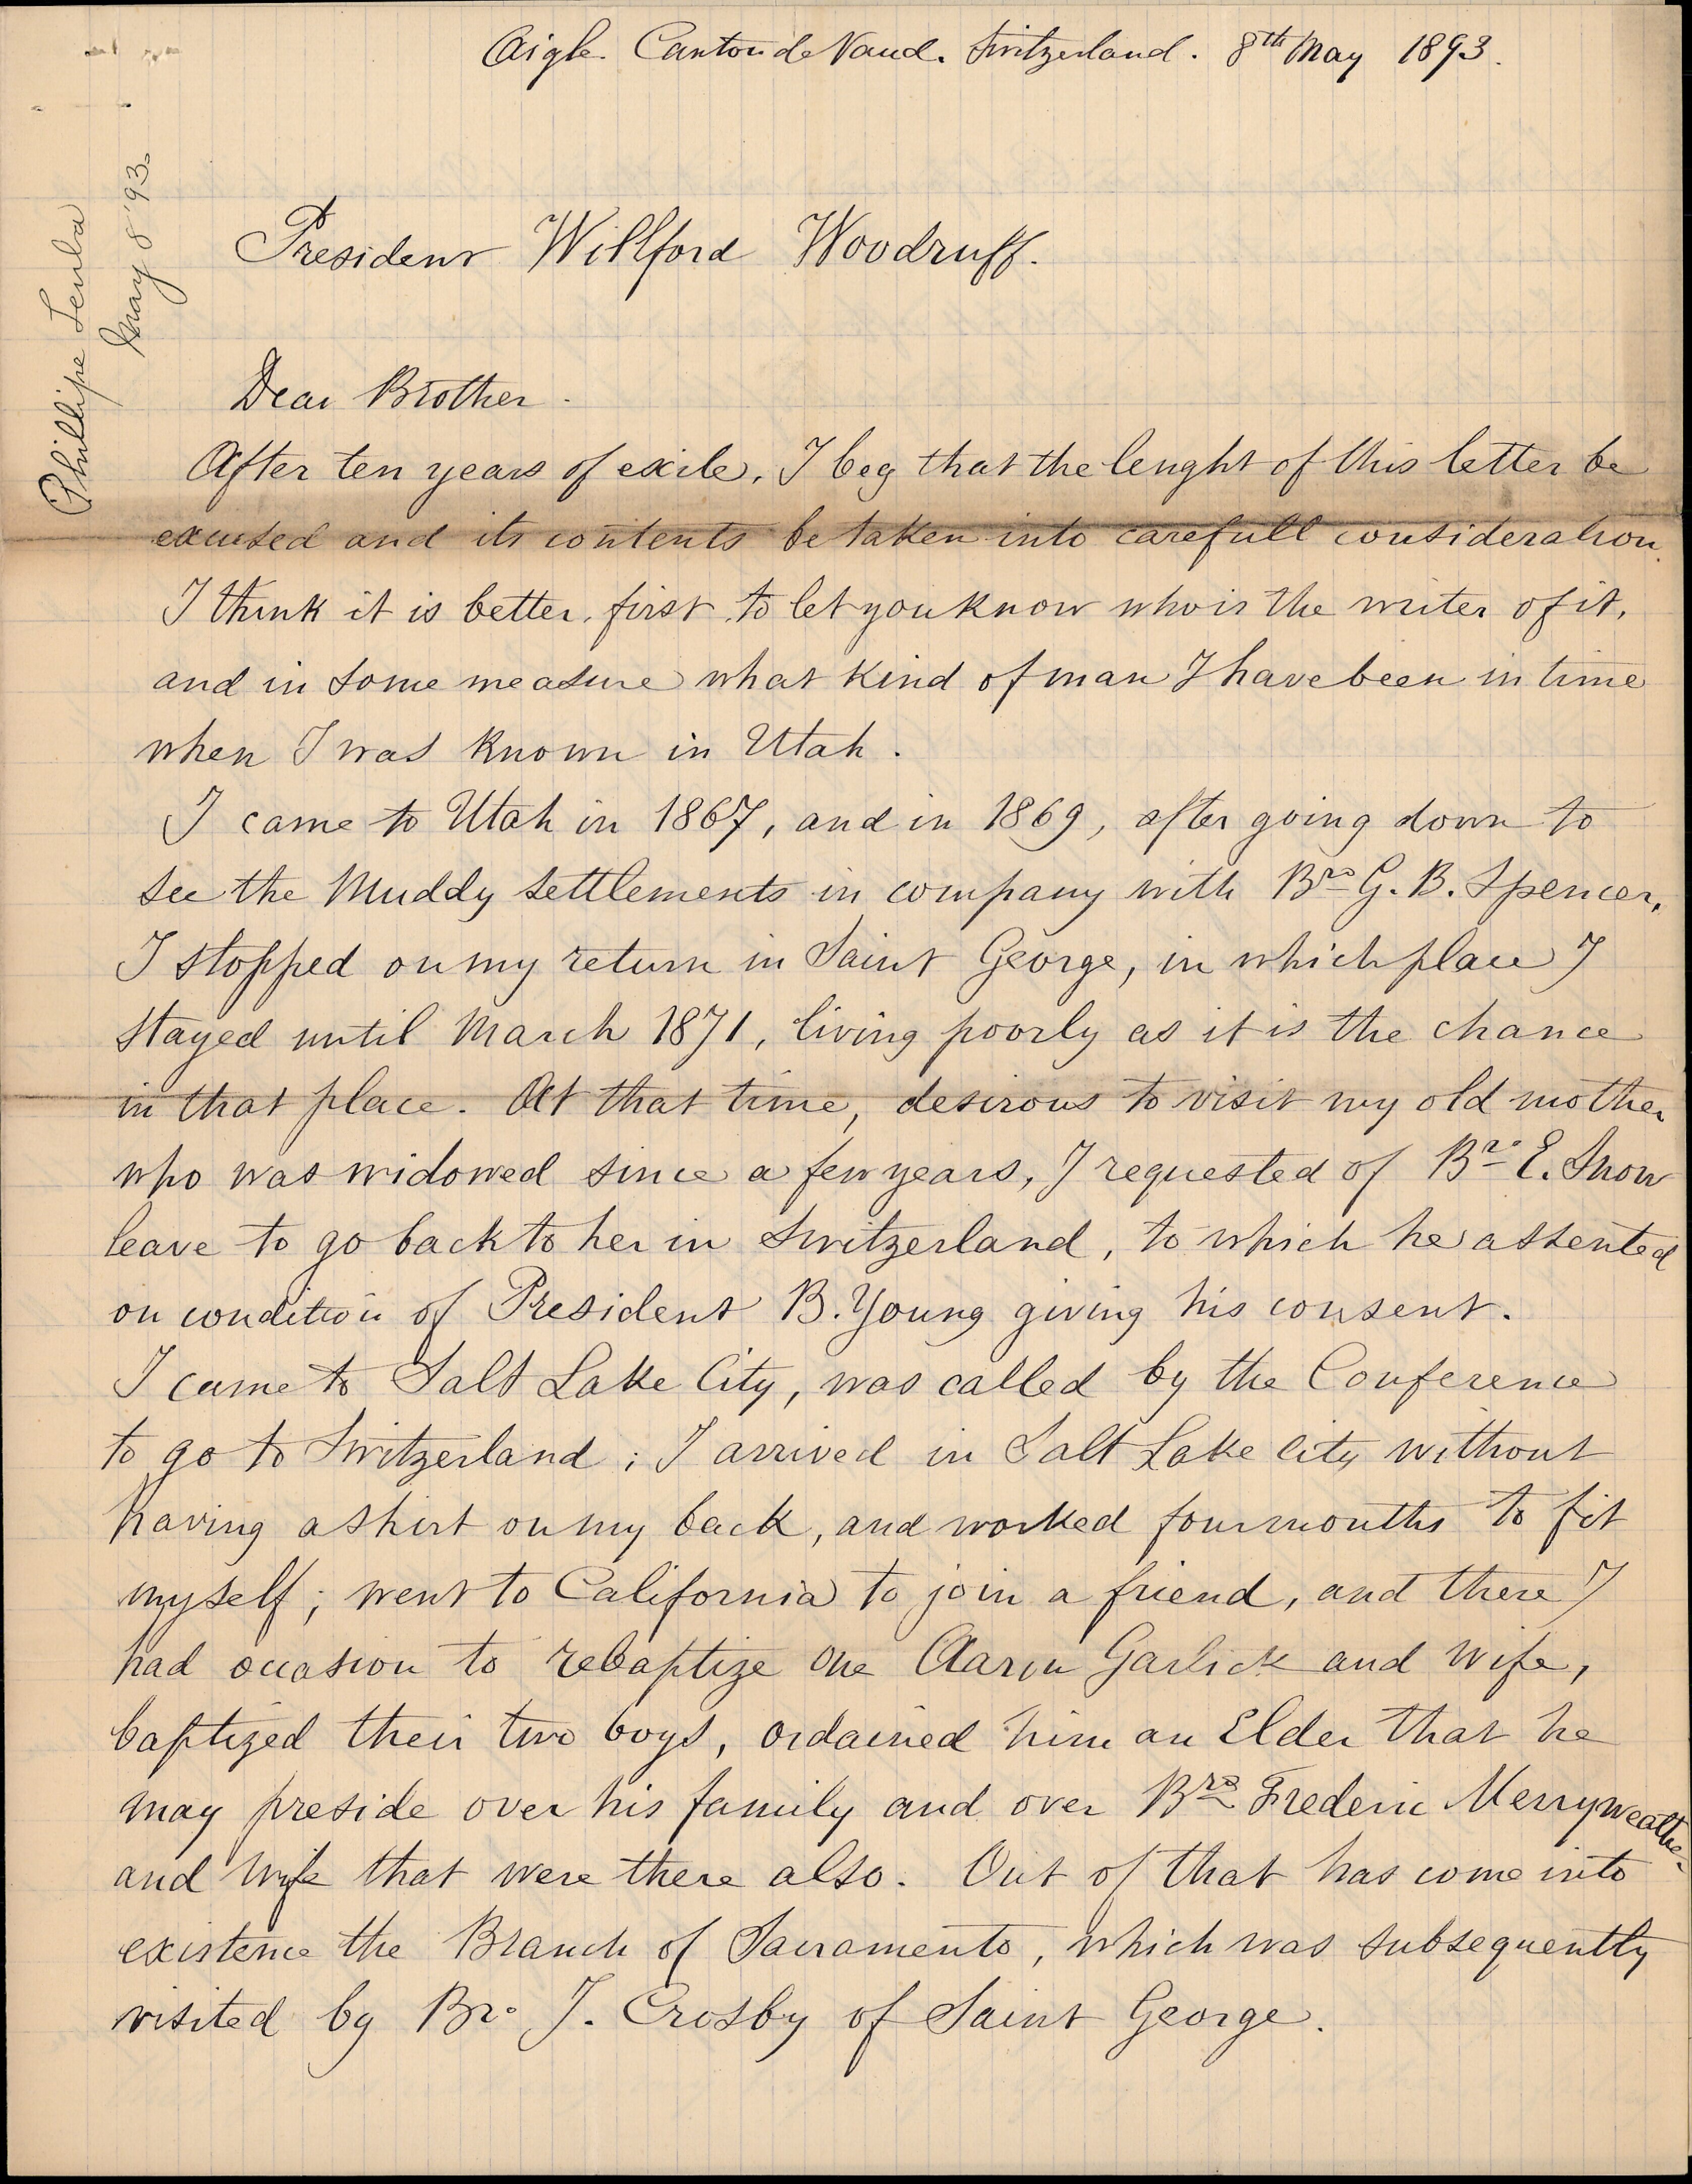 Aigle. Canton de Vaud. Switzerland. 8th May 1893.
Phillipe Leuba
May 8 '93.
President Willford Woodruff.
Dear Brother.
After ten years of exile, I beg that the lenght of this letter be
excused and its contents be taken into carefull consideration.
I think it is better, first, to let you know who is the writer of it,
and in some measure what kind of man I have been in time
when I was known in Utah.
I came to Utah in 1867, and in 1869, after going down to
see the Muddy settlements in company with Bro G. B. Spencer,
I stopped on my return in Saint George, in which place I
stayed until March 1871, living poorly as it is the chance
in that place. At that time, desirous to visit my old mother
who was widowed since a few years, I requested of Br. E. Snow
leave to go back to her in Switzerland, to which he assented
on condition of President B. Young giving his consent.
I came to Salt Lake City, was called by the Conference
to go to Switzerland; I arrived in Salt Lake City without
having a shirt on my back, and worked four months to fit
myself; went to California to join a friend, and there I
had occasion to rebaptize one Aaron Garlick and wife,
baptized their two boys, ordained him an Elder that he
may preside over his family and over Bro Frederic Merryweather
and wife that were there also. Out of that has come into
existence the Branch of Sacramento, which was subsequently
visited by Bro. J. Crosby of Saint George.